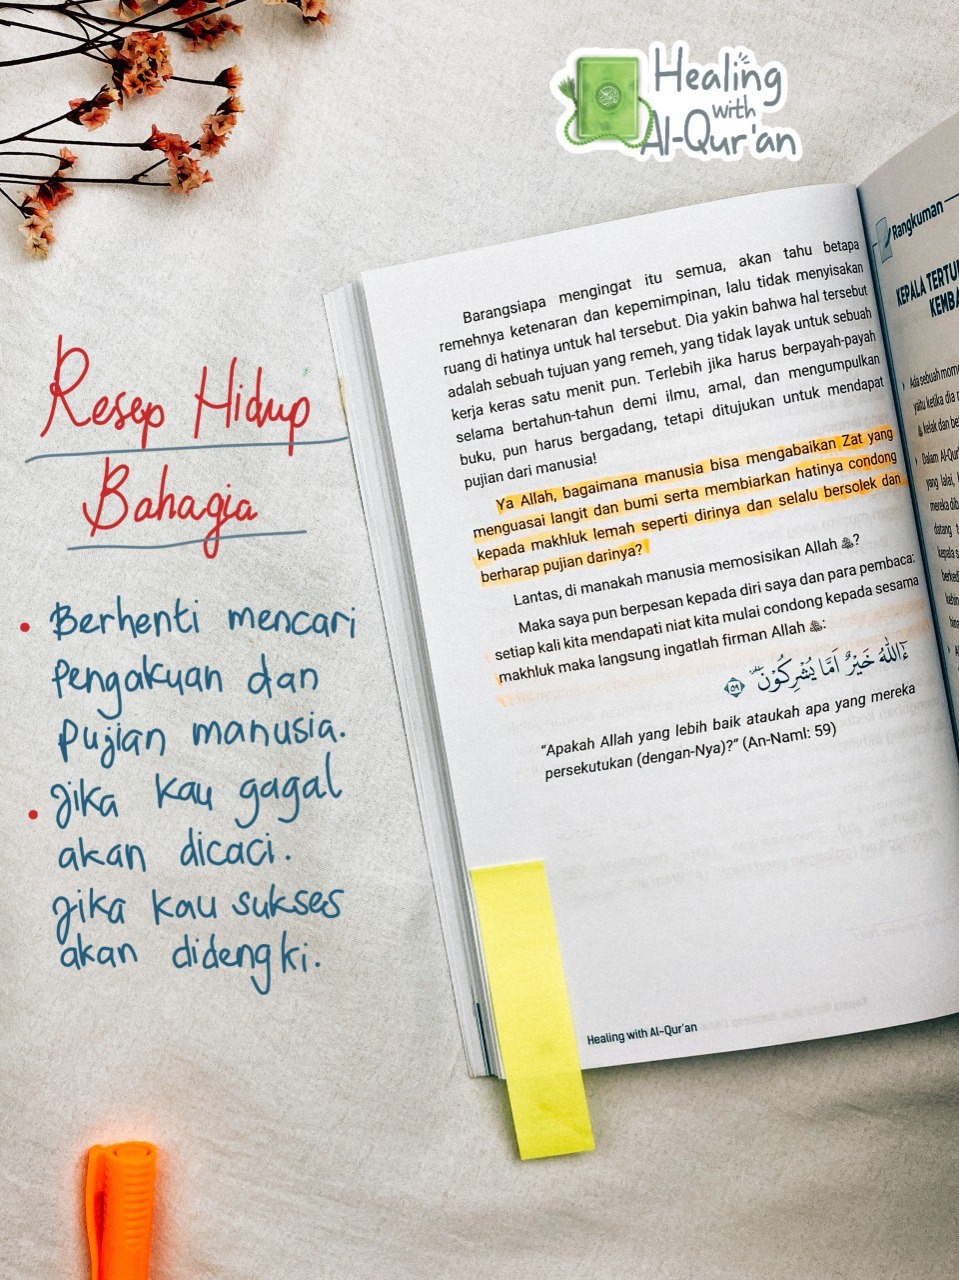 Healing
with
Al-Qur'an
Resep Hidup
Bahagia
• Berhenti mencari
pengakuan dan
pujian manusia.
• Jika kau gagal
akan dicaci.
Jika kau sukses
akan didengki.
Barangsiapa mengingat itu semua, akan tahu betapa
remehnya ketenaran dan kepemimpinan, lalu tidak menyisakan
ruang di hatinya untuk hal tersebut. Dia yakin bahwa hal tersebut
adalah sebuah tujuan yang remeh, yang tidak layak untuk sebuah
kerja keras satu menit pun. Terlebih jika harus berpayah-payah
selama bertahun-tahun demi ilmu, amal, dan mengumpulkan
buku, pun harus bergadang, tetapi ditujukan untuk mendapat
pujian dari manusia!
Ya Allah, bagaimana manusia bisa mengabaikan Zat yang
menguasai langit dan bumi serta membiarkan hatinya condong
kepada makhluk lemah seperti dirinya dan selalu bersolek dan
berharap pujian darinya?
Lantas, di manakah manusia memosisikan Allah ﷻ?
Maka saya pun berpesan kepada diri saya dan para pembaca:
setiap kali kita mendapati niat kita mulai condong kepada sesama
makhluk maka langsung ingatlah firman Allah ﷻ:
ءَاۤللّٰهُ خَيْرٌ اَمَّا يُشْرِكُوْنَ ۔ ٥٩
“Apakah Allah yang lebih baik ataukah apa yang mereka
persekutukan (dengan-Nya)?” (An-Naml: 59)
Healing with Al-Qur'an
Rangkuman
KEPALA
Ada sebuah
yaitu ketika dia
kelak dan
Dalam Al-Qur'
yang lalai,
mereka
datang
kepala